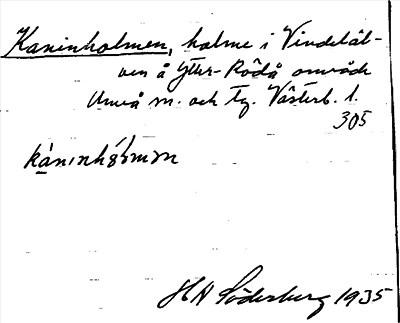 Kaninholmen, holme i Vindeläl-
ven å Ytter-Rödå område
Umeå sn. och tg. Västerb. l.
305
HN Söderberg 1935